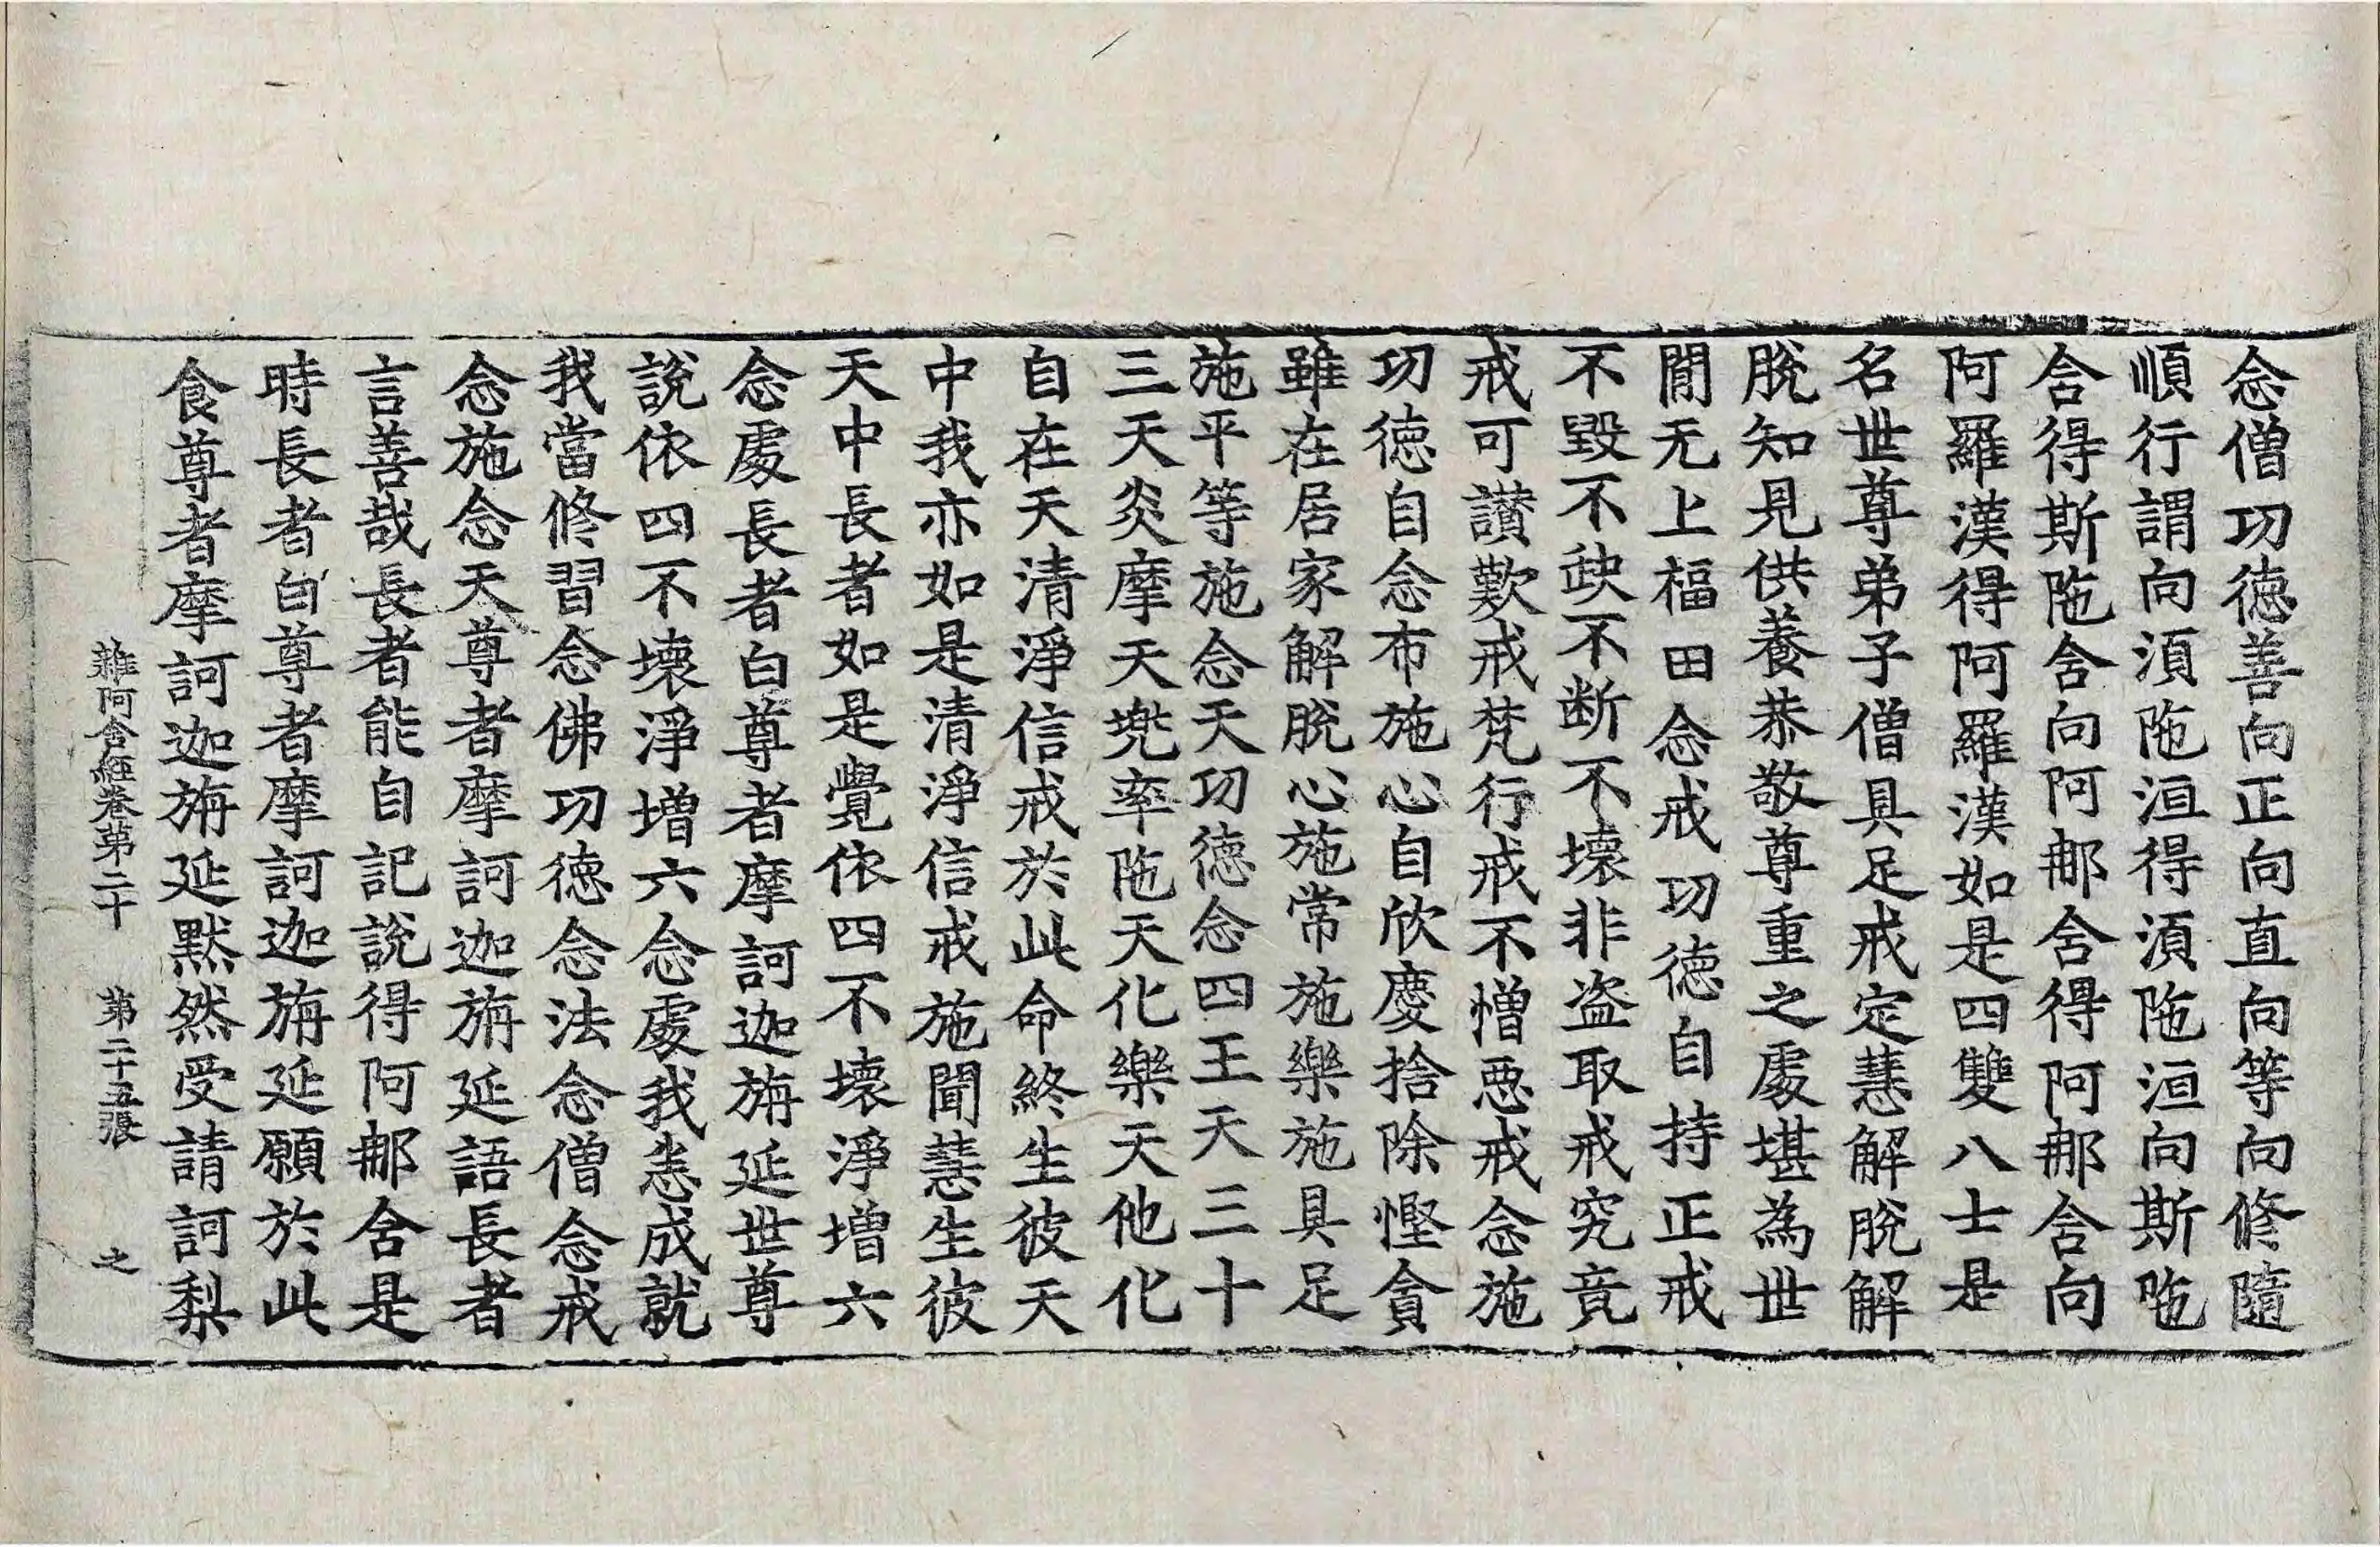 念僧功德善向正向直向等向修隨
順行謂向湏陁洹得湏陁洹向斯陁
含得斯陁含向阿那含得阿那含向
阿羅漢得阿羅漢如是四雙八士是
名世尊弟子僧具足戒定慧解脫解
脫知見供養恭敬尊重之處堪為世
閒无上福田念戒功德自持正戒
不毀不缺不断不壞非盜取戒究竟
戒可讃歎戒梵行戒不憎惡戒念施
功德自念布施心自欣慶捨除慳貪
雖在居家解脫心施常施樂施具足
施平等施念天功德念四王天三十
三天炎摩天兠率陁天化樂天他化
自在天清淨信戒於此命終生彼天
中我亦如是清淨信戒施聞慧生彼
天中長者如是覺依四不壞淨增六
念處長者白尊者摩訶迦旃延世尊
說依四不壞淨增六念處我悉成就
我當修習念佛功德念法念僧念戒
念施念天尊者摩訶迦旃延語長者
言善哉長者能自記說得阿那含是
時長者白尊者摩訶迦旃延願於此
食尊者摩訶迦旃延默然受請訶梨
雜阿含經卷第二十　第二十五張　之